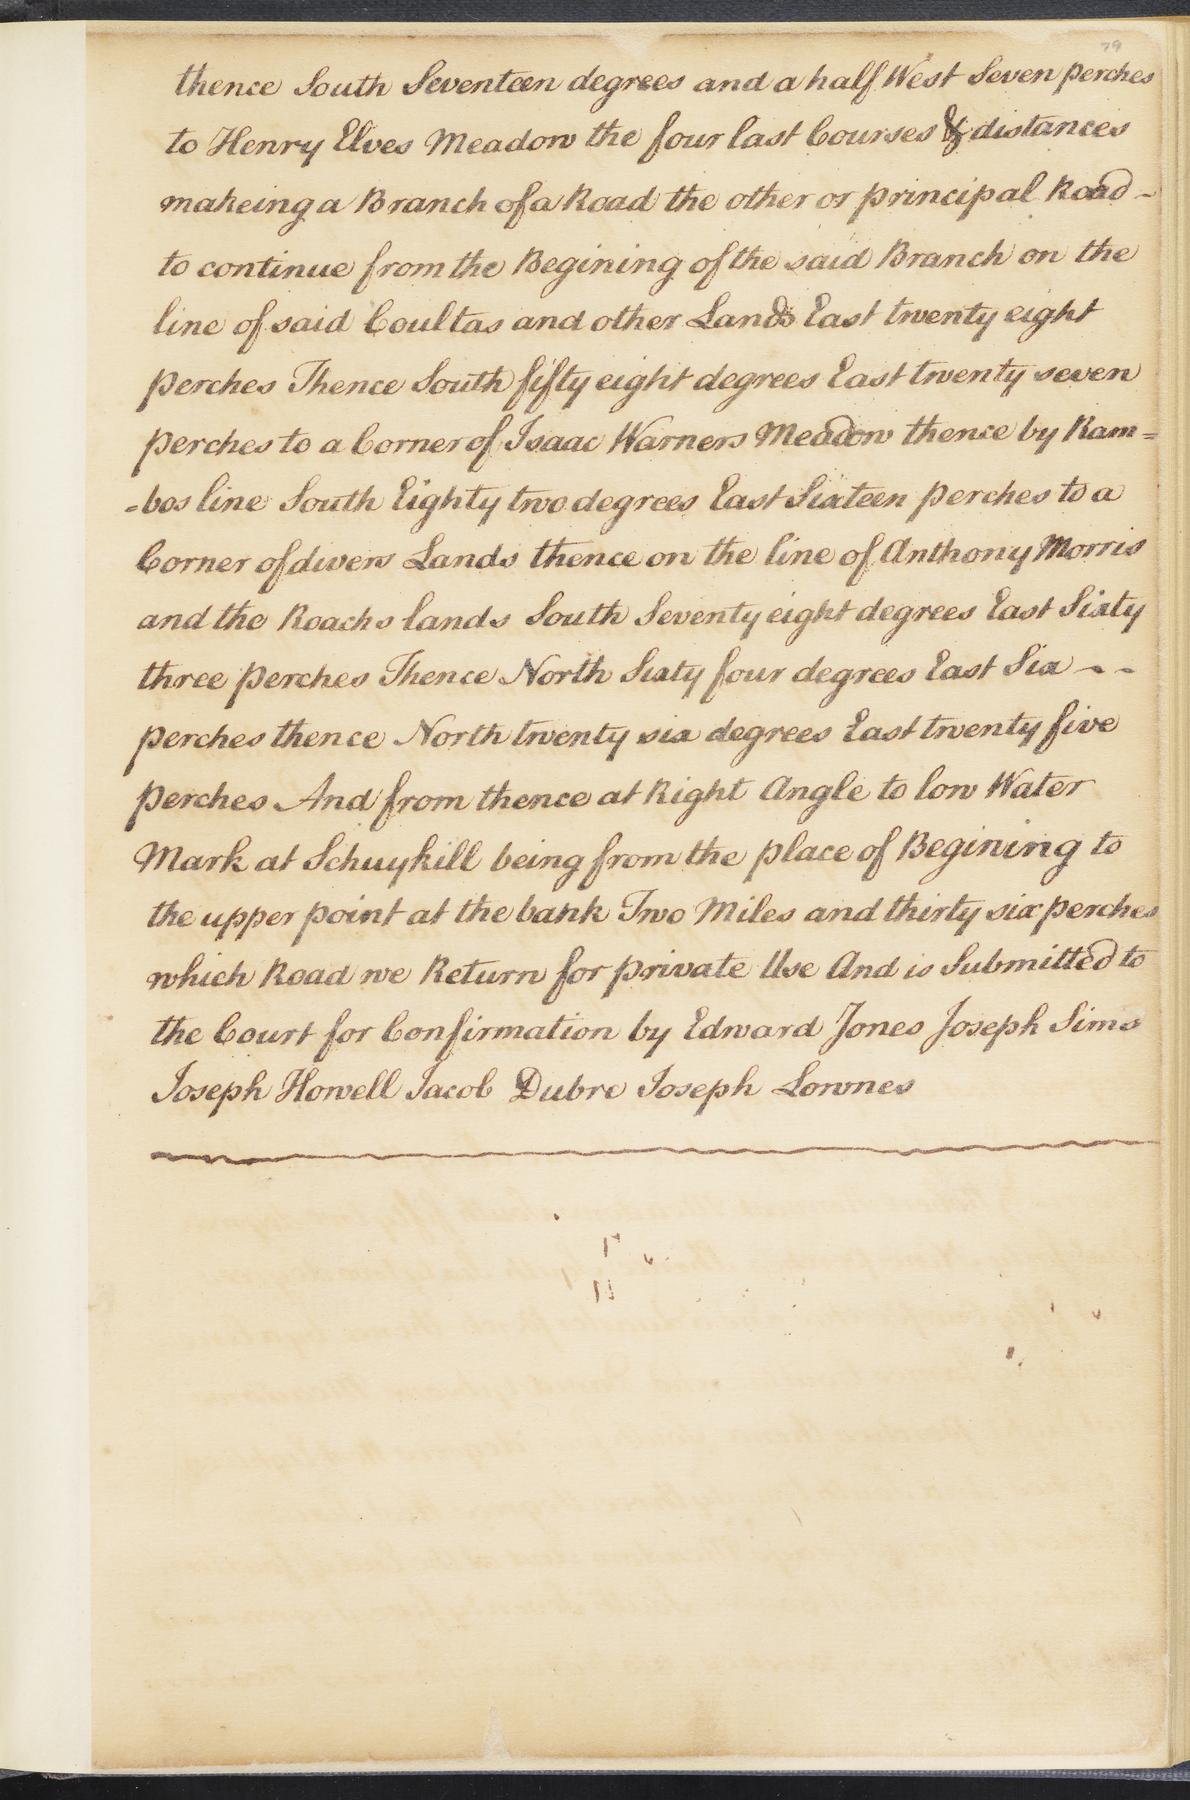 79
thence South Seventeen degrees and a half West Seven perches
to Henry Elves Meadow the four last Courses & distances
makeing a Branch of a Road the other or principal Road -
to continue from the Begining of the said Branch on the
line of said Coultas and other Lands East twenty eight
perches Thence South fifty eight degrees East twenty seven
perches to a Corner of Isaac Warners Meadow thence by Ram=
=bos line South Eighty two degrees East Sixteen perches to a
Corner of divers Lands thence on the line of Anthony Morris
and the Roachs lands South Seventy eight degrees East Sixty
three perches Thence North Sixty four degrees East Six - -
perches thence North twenty six degrees East twenty five
perches And from thence at Right Angle to low Water
Mark at Schuykill being from the place of Begining to
the upper point at the bank Two Miles and thirty six perches
which Road we Return for private Use And is Submitted to
the Court for Confirmation by Edward Jones Joseph Sims
Joseph Howell Jacob Dubre Joseph Lownes